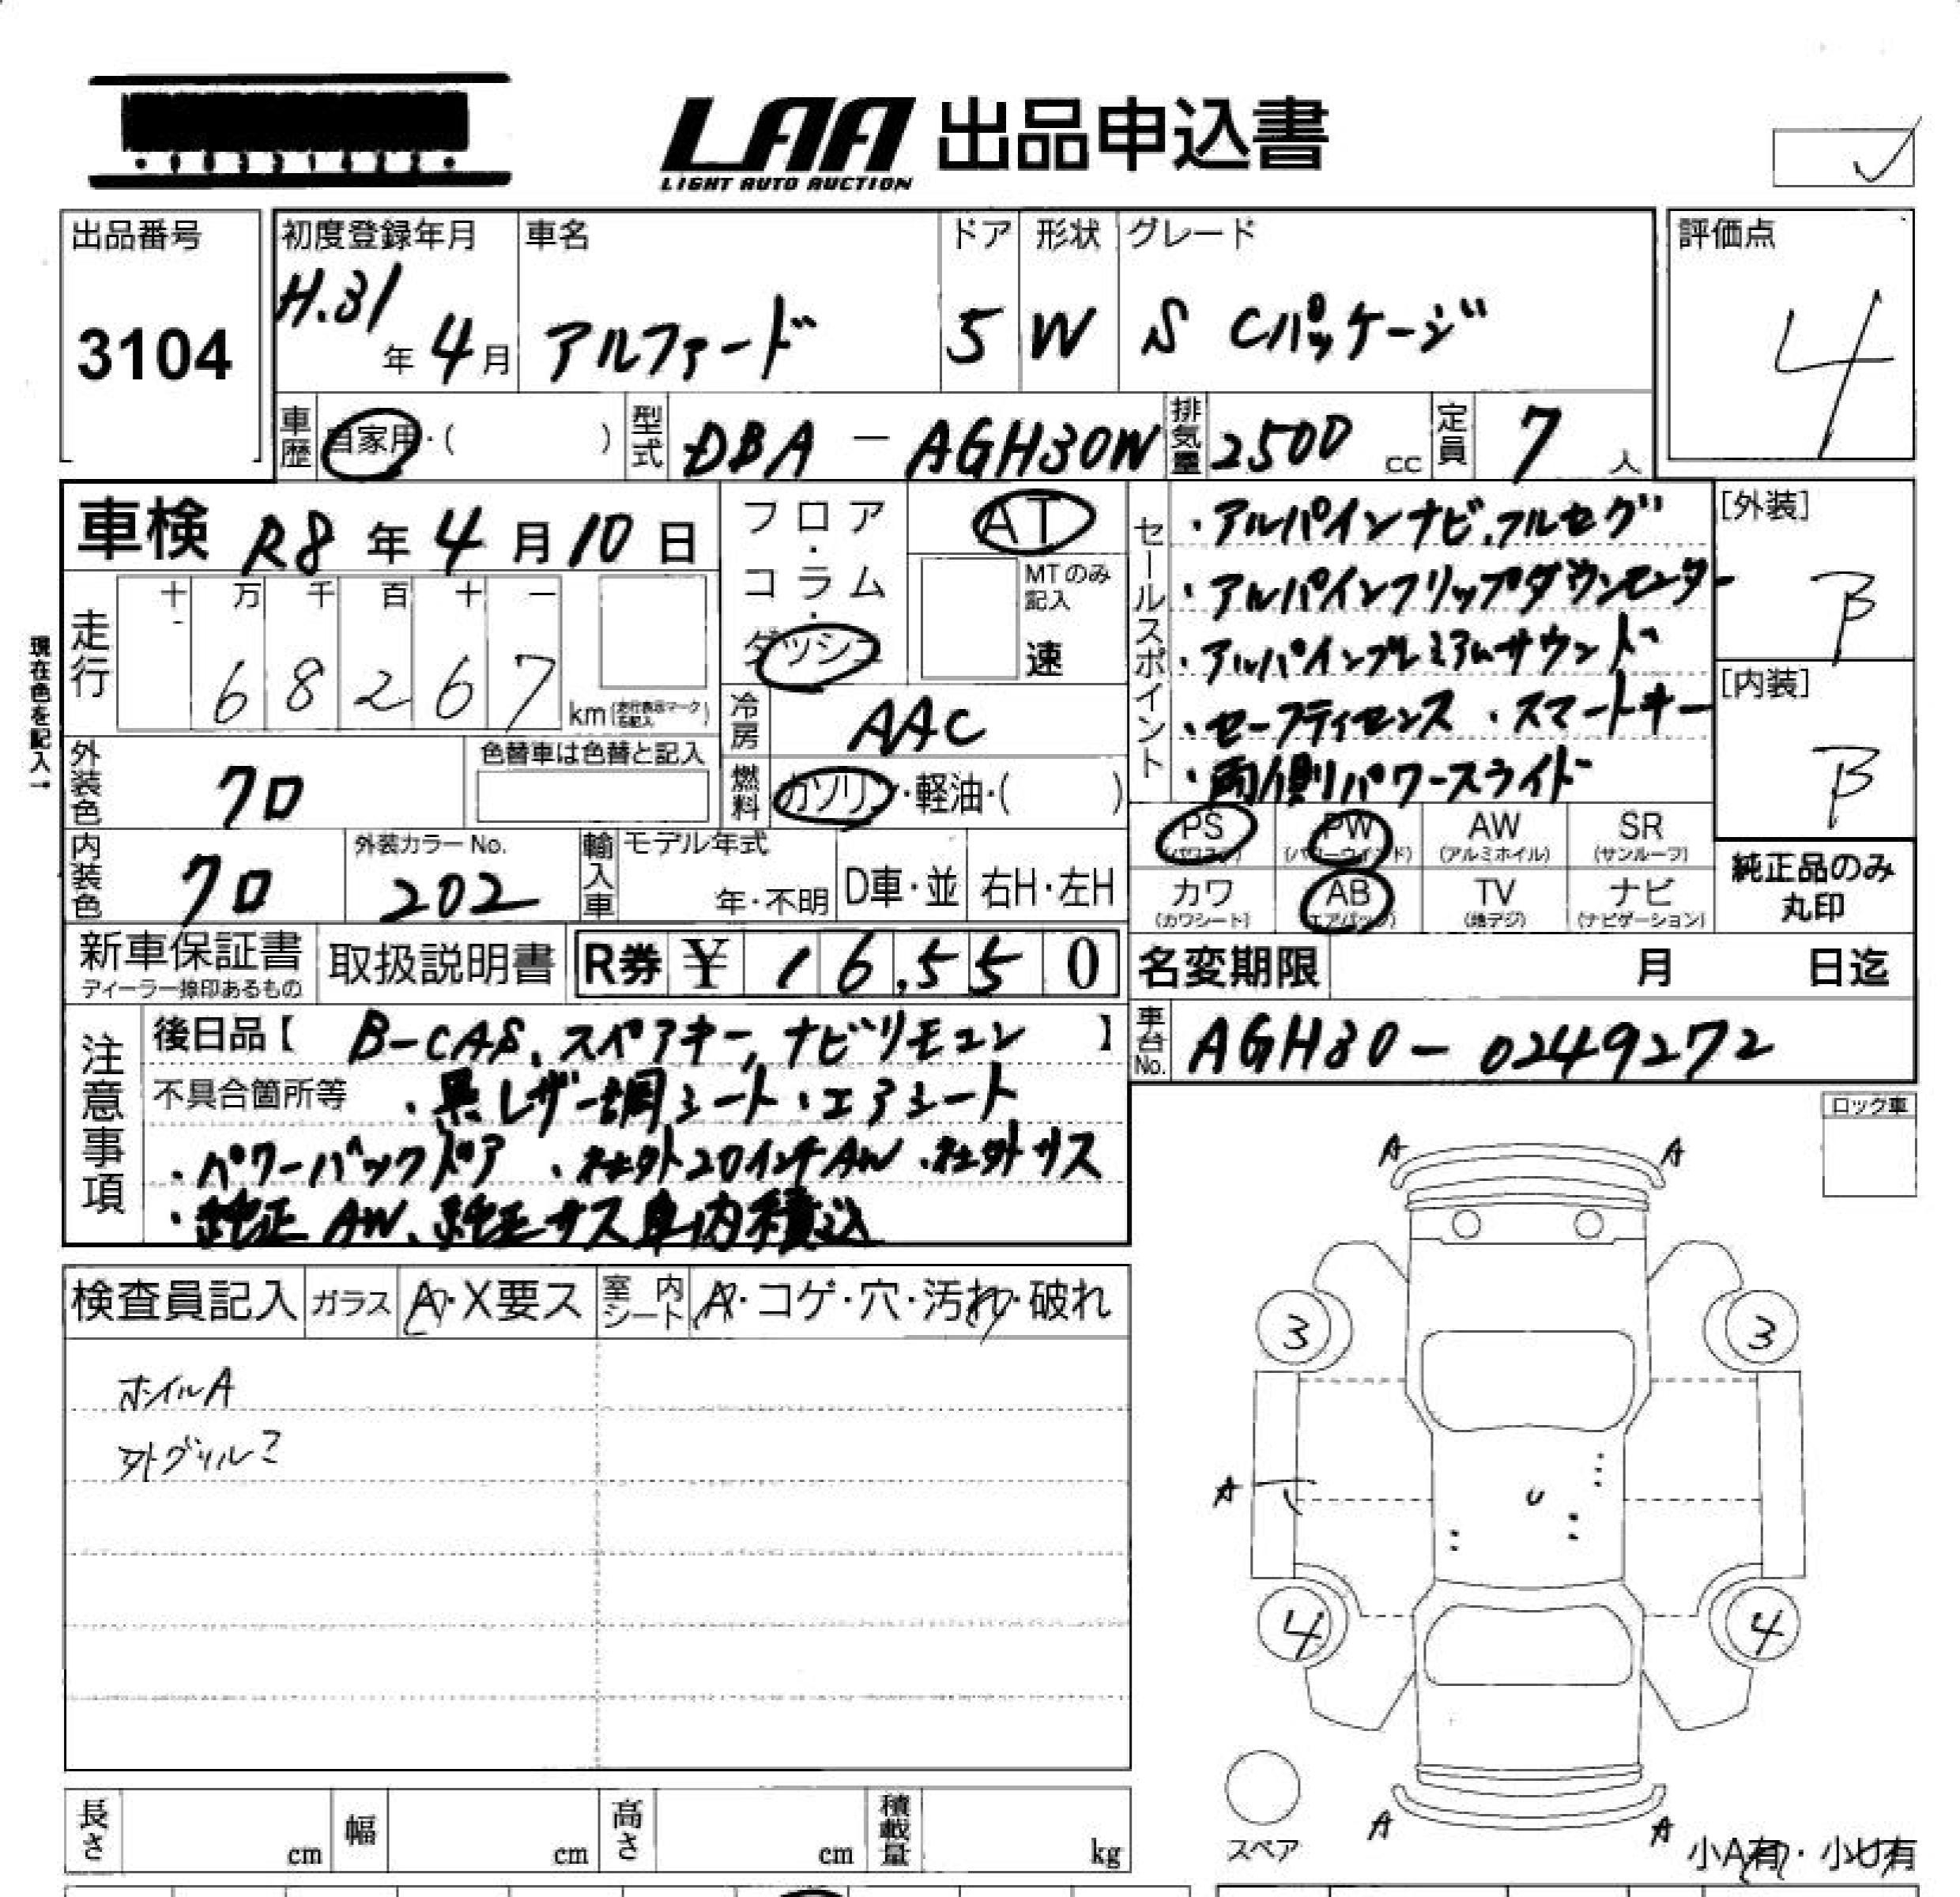 LAA 出品申込書
LIGHT AUTO AUCTION
出品番号
3104
初度登録年月
H.31年 4月
車名
アルファード
ドア
5
形状
W
グレード
S Cパッケージ
評価点
4
車歴 自家用・( )
型式 DBA-AGH30W
排気量 2500 cc
定員 7人
車検 R8年 4月 10日
現在色を記入→
走行
十 万 千 百 十 一
6 8 2 6 7
km(走行表示マーク右記入)
外装色 クロ
色替車は色替と記入
内装色 クロ
外装カラーNo. 202
フロア・コラム・ダッシュ
AT
MTのみ記入
速
冷房 AAC
燃料 ガソリン・軽油・( )
輸入車
モデル年式
年・不明
D車・並
右H・左H
セールスポイント
・アルパインナビ、フルセグ
・アルパインフリップダウンモニター
・アルパインプレミアムサウンド
・セーフティセンス ・スマートキー
・両側パワースライド
[外装]
B
[内装]
B
PS(パワステ) PW(パワーウインド) AW(アルミホイル) SR(サンルーフ)
カワ(カワシート) AB(エアバッグ) TV(地デジ) ナビ(ナビゲーション)
純正品のみ丸印
新車保証書
ディーラー捺印あるもの
取扱説明書
R券 ¥ 16,550
名変期限 月 日迄
車台No. AGH30-0249272
注意事項
後日品【 B-CAS、スペアキー、ナビリモコン 】
不具合箇所等 ・黒レザー調シート・エアシート
・パワーバックドア ・社外20インチAW ・社外サス
・純正AW、純正サス車内積込
ロック車
検査員記入 ガラス A・X要ス 室内シート A・コゲ・穴・汚れ・破れ
ホイルA
外グリル?
A A
3 3
A
U
4 4
スペア
A A
小A有・小U有
長さ cm 幅 cm 高さ cm 積載量 kg